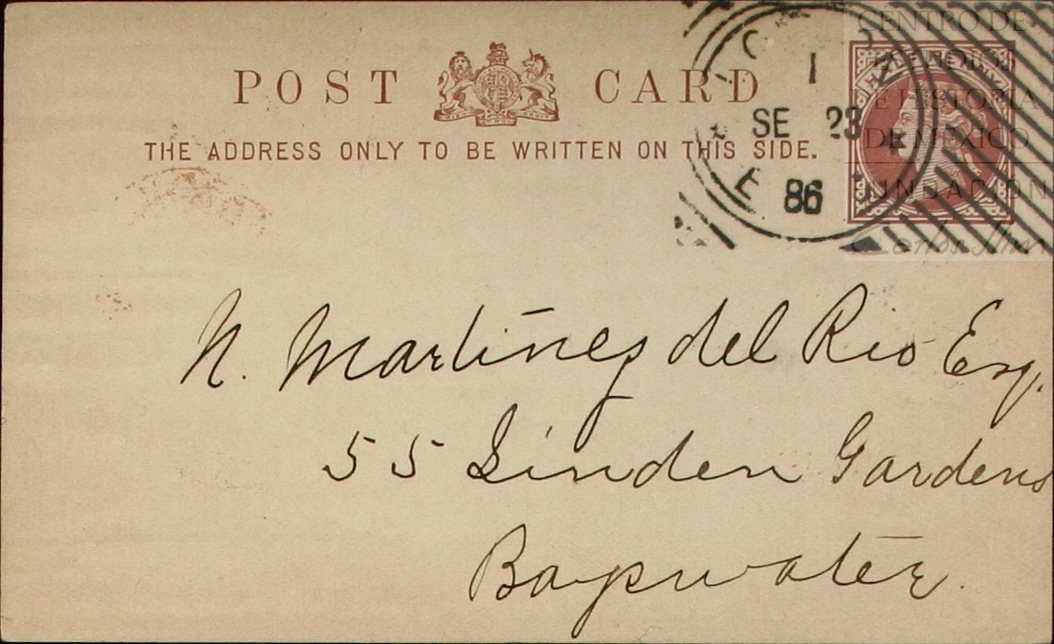 POST CARD
THE ADDRESS ONLY TO BE WRITTEN ON THIS SIDE.
1
SE 23
86
CENTRO DE
ESTUDIOS
DE HISTORIA
DE MEXICO
FUNDACION
Carlos Slim
N. Martinez del Rio Esq.
55 Linden Gardens
Bayswater.